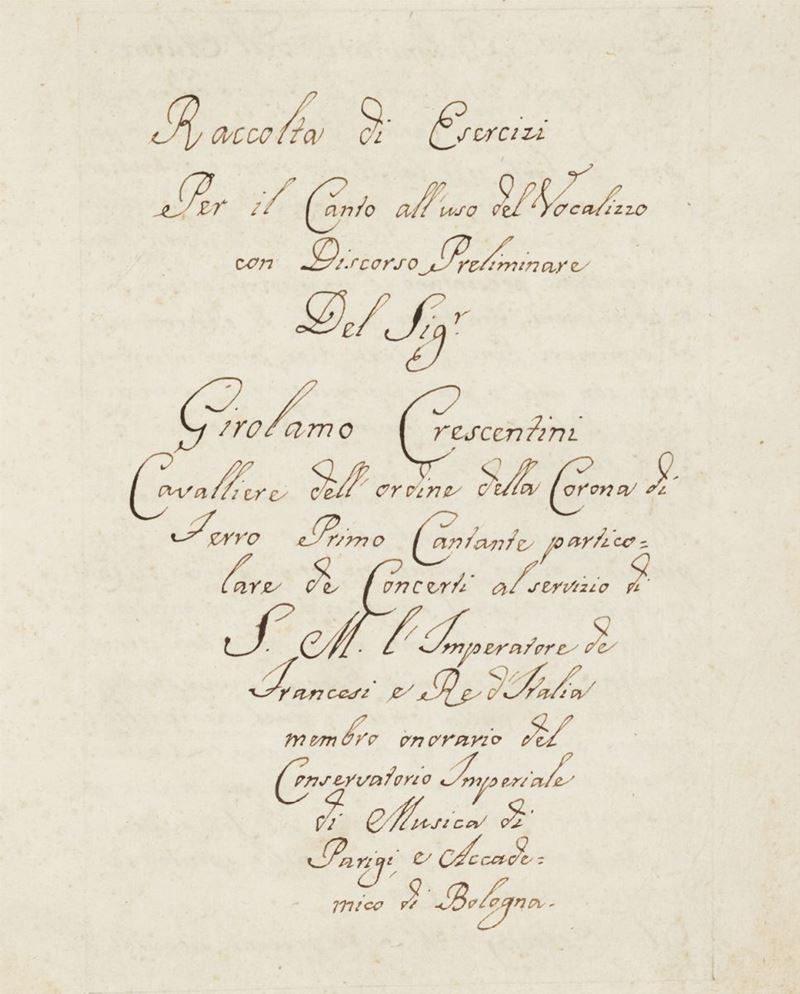 Raccolta di Esercizi
Per il Canto all'uso del Vocalizzo
con Discorso Preliminare
Del Sigr.
Girolamo Crescentini
Cavalliere dell'ordine della Corona di
Ferro Primo Cantante partico=
lare de Concerti al servizio di
S. M. l'Imperatore de
Francesi e Re d'Italia
membro onorario del
Conservatorio Imperiale
di Musica di
Parigi, e Accade=
mico di Bologna.